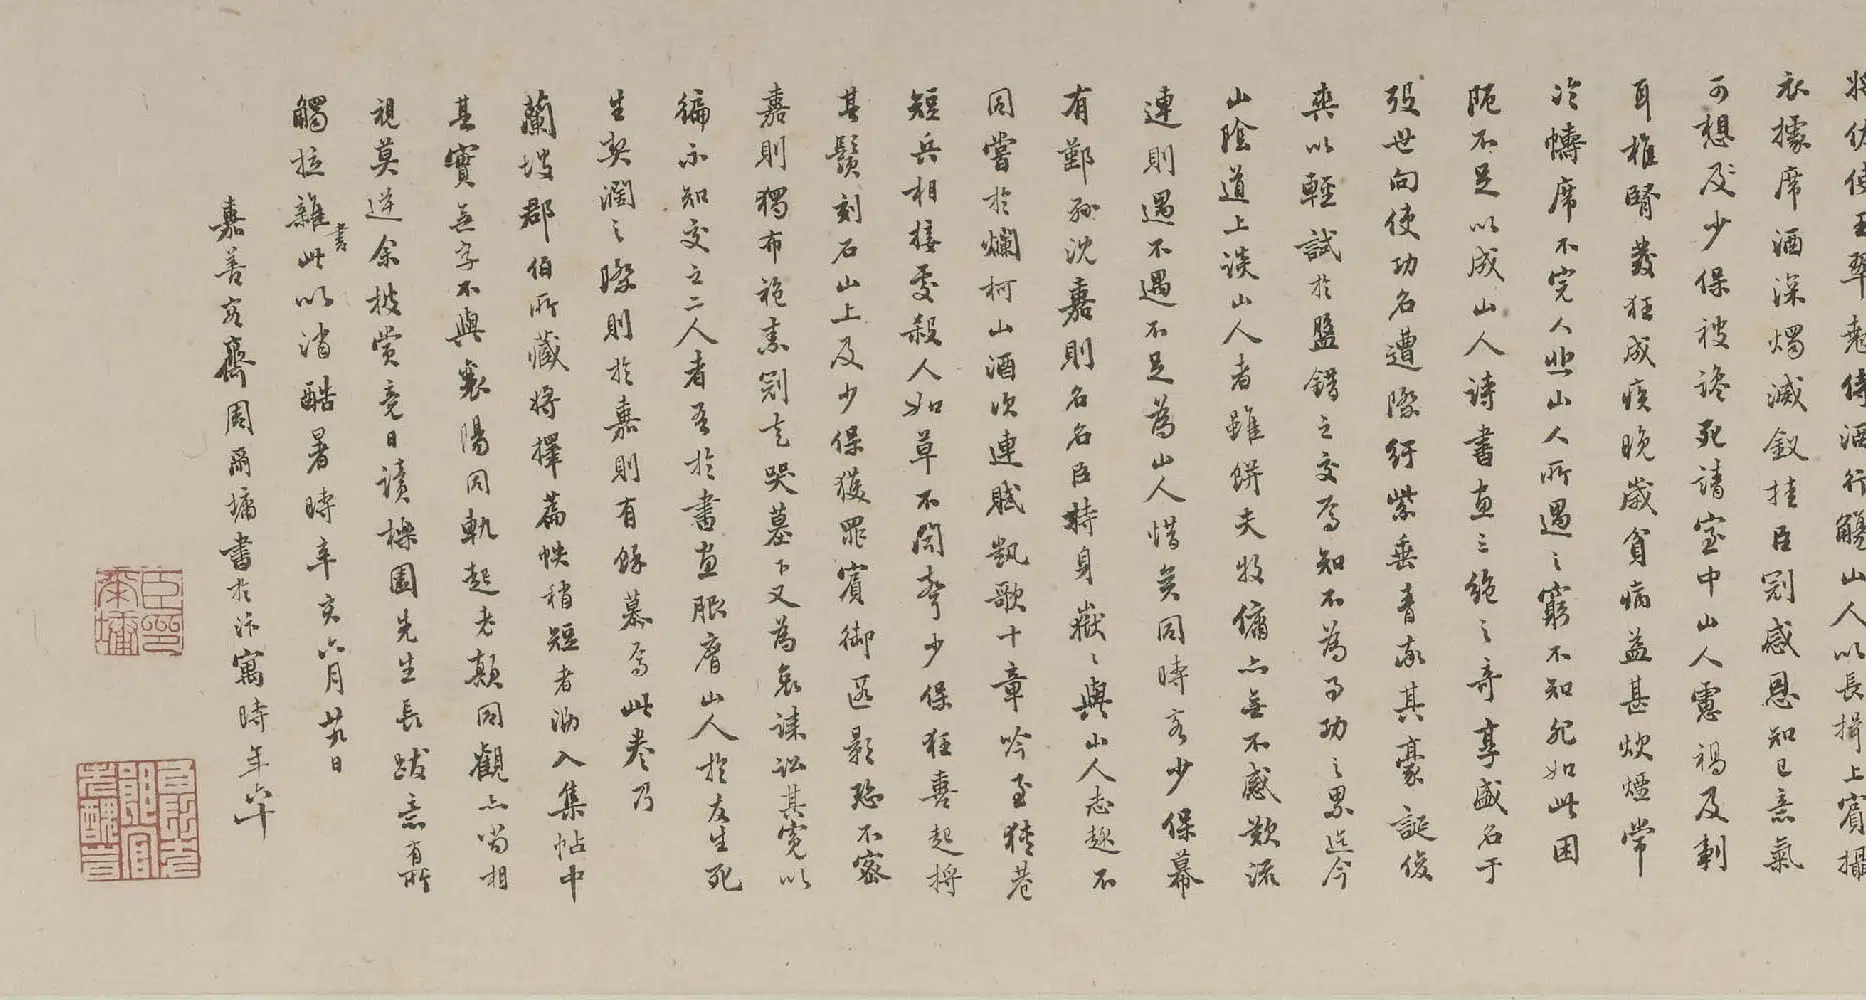 將仗使玉翠尪侍酒行觴山人以長揖上賓攝
衣據席酒深燭滅釵挂臣冠感恩知己意氣
可想及少保被讒死請室中山人憲禍及剚
耳椎腎發狂成疾晚歲貧病益甚炊煙常
冷幬席不完人悲山人所遇之窮不知死如此困
阨不足以成山人詩書畫三絕之奇享盛名于
歿世向使功名遭際紆紫垂青敢其豪誕俊
爽以輕試於盤錯之交焉知不為事功之累迄今
山陰道上談山人者雖餅夫牧傭亦無不感歎流
連則遇不遇不足為山人惜矣同時客少保幕
有鄞孫沈嘉則名名臣特身嶽嶽與山人志趣不
同嘗於爛柯山酒次連賦凱歌十章吟至狹巷
短兵相接處殺人如草不聞聲少保狂喜起捋
其鬚刻石山上及少保獲罪賓御逕影跡不密
嘉則獨布袍素冠走哭墓下又為哀誄訟其冤以
徧示知交之二人者吾於書畫服膺山人於友生死
生契濶之際則於嘉則有餘慕焉此卷乃
蘭坡郡伯所藏將擇篇帙稍短者泐入集帖中
其實無字不與襄陽同軌起老顛同觀亦當相
視莫逆余披賞竟日讀櫟園先生長跋意有所
觸拉雜書此以消酷暑時辛亥六月廿九日
嘉善容齋周爾墉書於汴寓時年六十
臣印爾墉